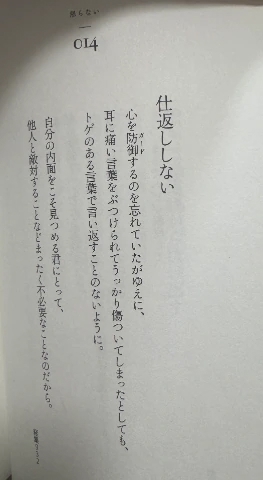 怒らない
014
仕返ししない
心を防御するのを忘れていたがゆえに、
ガード
耳に痛い言葉をぶつけられてうっかり傷ついてしまったとしても、
トゲのある言葉で言い返すことのないように。
自分の内面をこそ見つめる君にとって、
他人と敵対することなどまったく不必要なことなのだから。